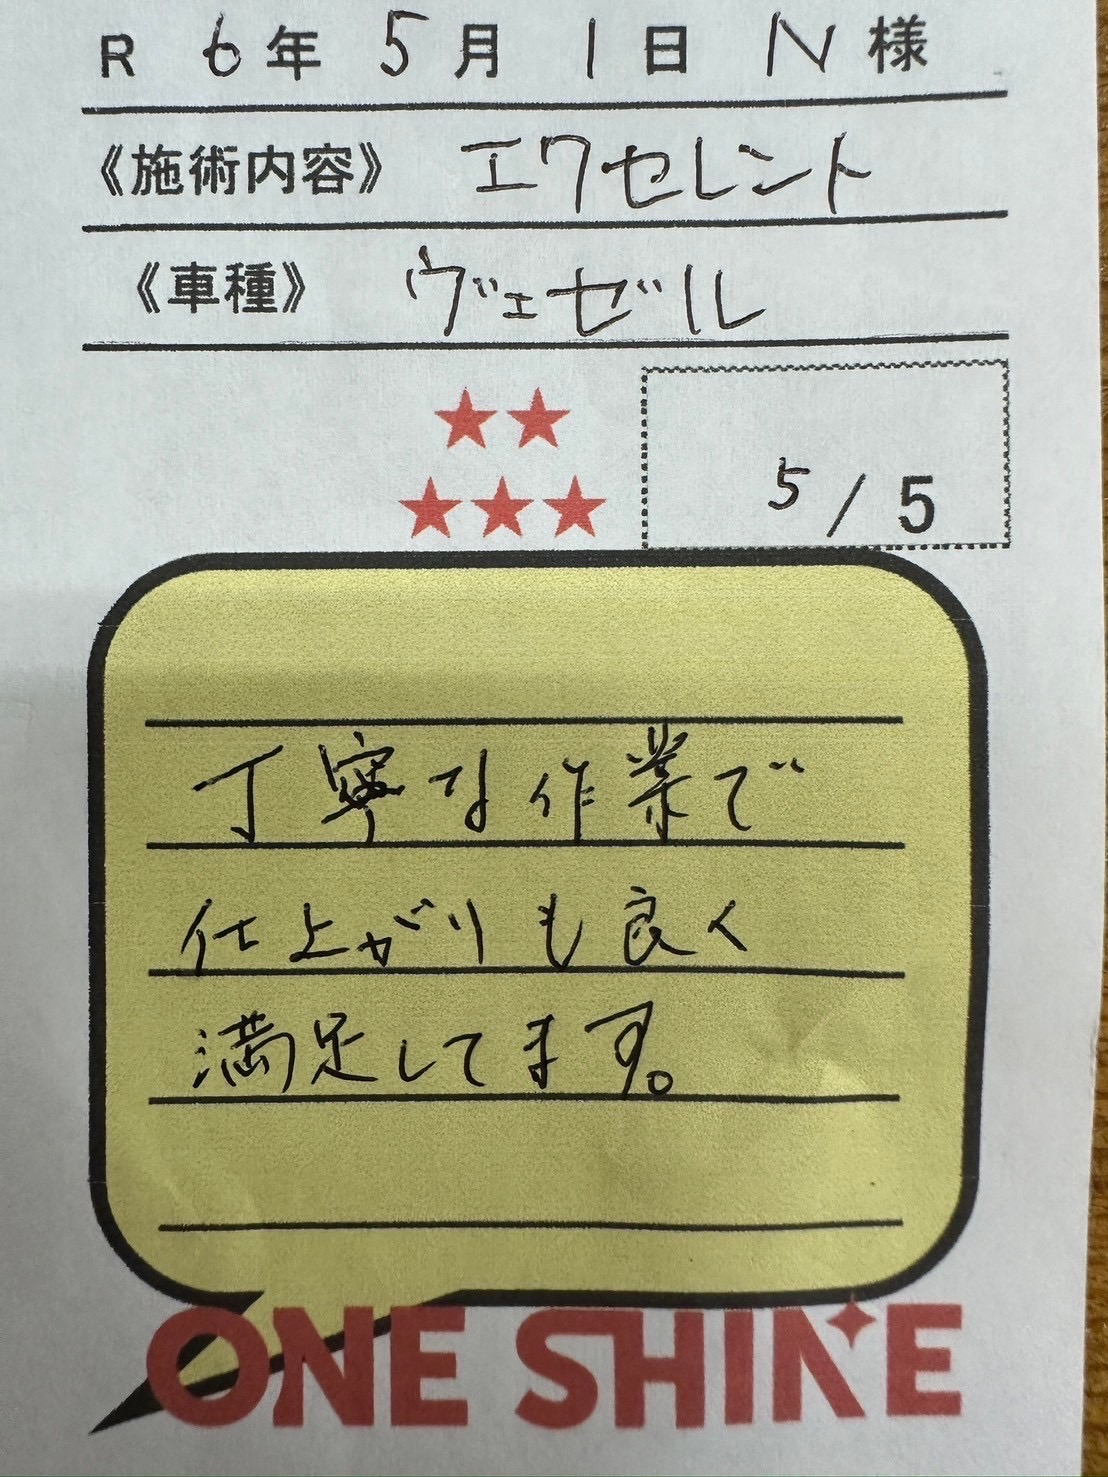 R 6年 5月 1日 N 様
《施術内容》 エクセレント
《車種》 ヴェゼル
5 / 5
丁寧な作業で
仕上がりも良く
満足してます。
ONE SHINE